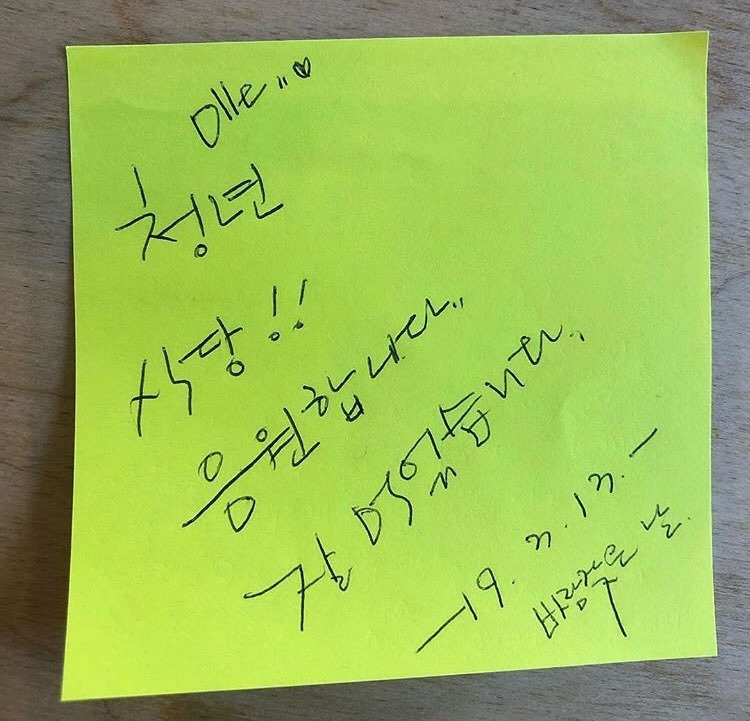 Olle,, ♥
청년
식당!!
응원합니다,,
잘 먹었습니다.,
-19. 7. 17. -
바람좋은 날.